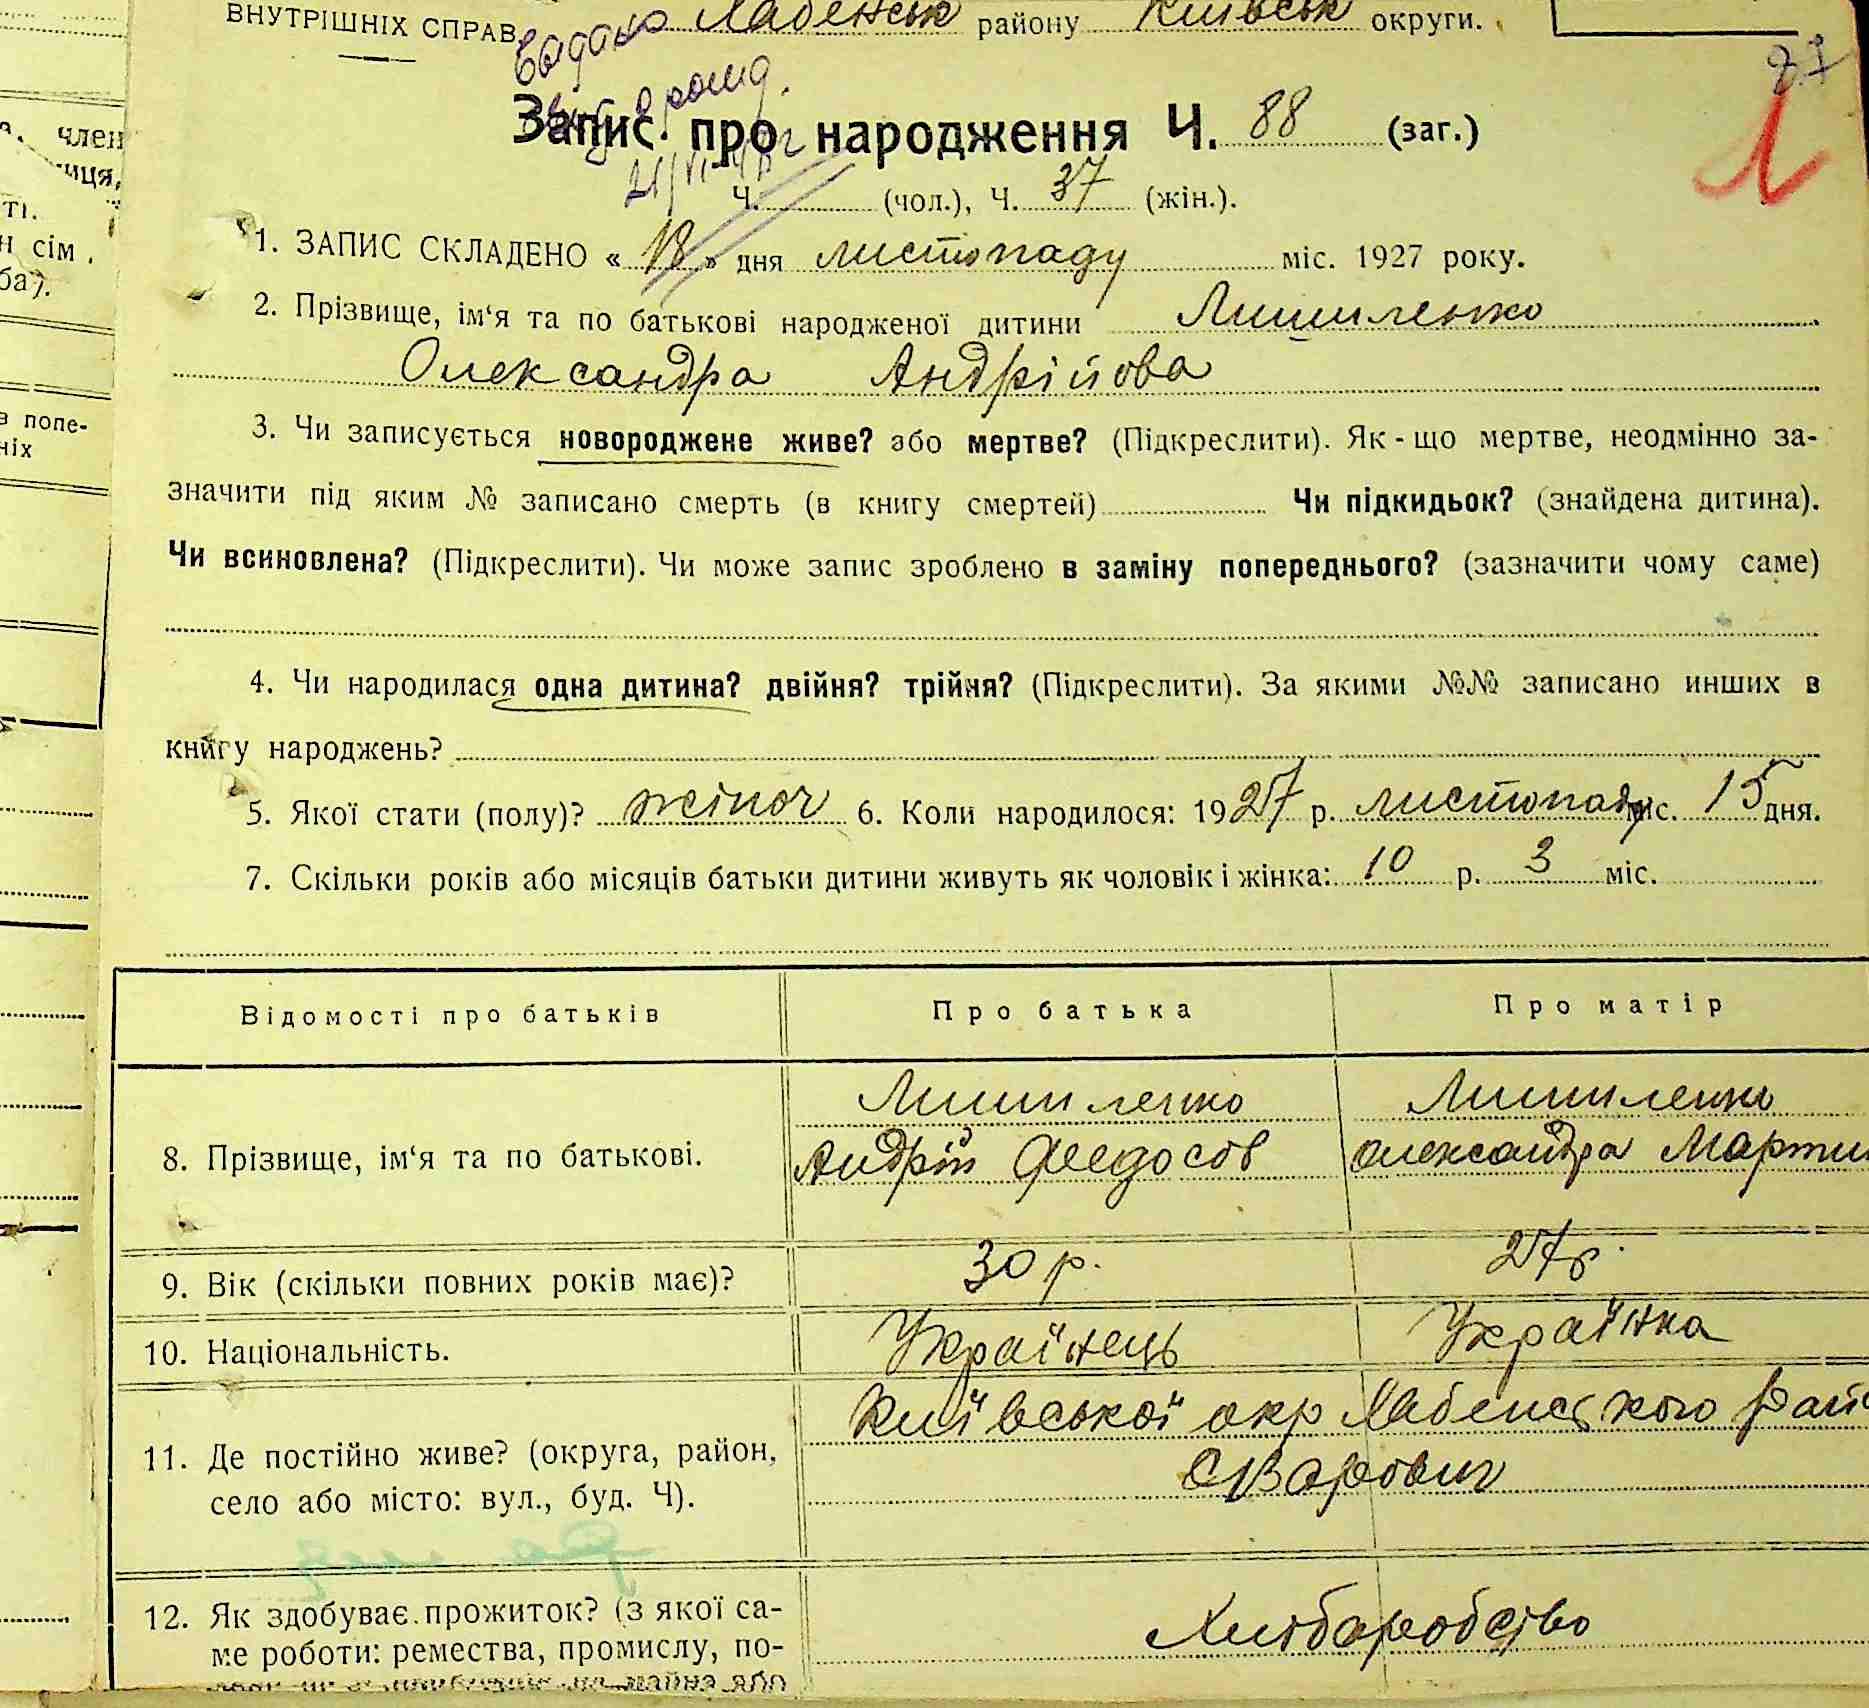 ВНУТРІШНІХ СПРАВ Хабенськ району Київськ округи.
87
Видано
21/VI
Запис про народження Ч. 88 (заг.)
Ч. (чол.), Ч. 37 (жін.).
1. ЗАПИС СКЛАДЕНО « 18 » дня листопаду міс. 1927 року.
2. Прізвище, ім‘я та по батькові народженої дитини Лишиленко
Олександра Андрійова
3. Чи записується новороджене живе? або мертве? (Підкреслити). Як-що мертве, неодмінно за-
значити під яким № записано смерть (в книгу смертей) Чи підкидьок? (знайдена дитина).
Чи всиновлена? (Підкреслити). Чи може запис зроблено в заміну попереднього? (зазначити чому саме)
4. Чи народилася одна дитина? двійня? трійня? (Підкреслити). За якими №№ записано инших в
книгу народжень?
5. Якої стати (полу)? жіноч 6. Коли народилося: 1927 р. листопаду міс. 15 дня.
7. Скільки років або місяців батьки дитини живуть як чоловік і жінка: 10 р. 3 міс.
Відомості про батьків Про батька Про матір
8. Прізвище, ім‘я та по батькові.
Лишиленко
Андрій Федосов
Лишиленко
Олександра Мартин
9. Вік (скільки повних років має)? 30 р. 27 р.
10. Національність. Українець Українка
11. Де постійно живе? (округа, район,
село або місто: вул., буд. Ч).
Київської окр Хабенського рай
с Варовичі
12. Як здобуває прожиток? (з якої са-
ме роботи: ремества, промислу, по-
майна або
Хліборобство
член
ті.
сім
ба).
в попе-
ніх